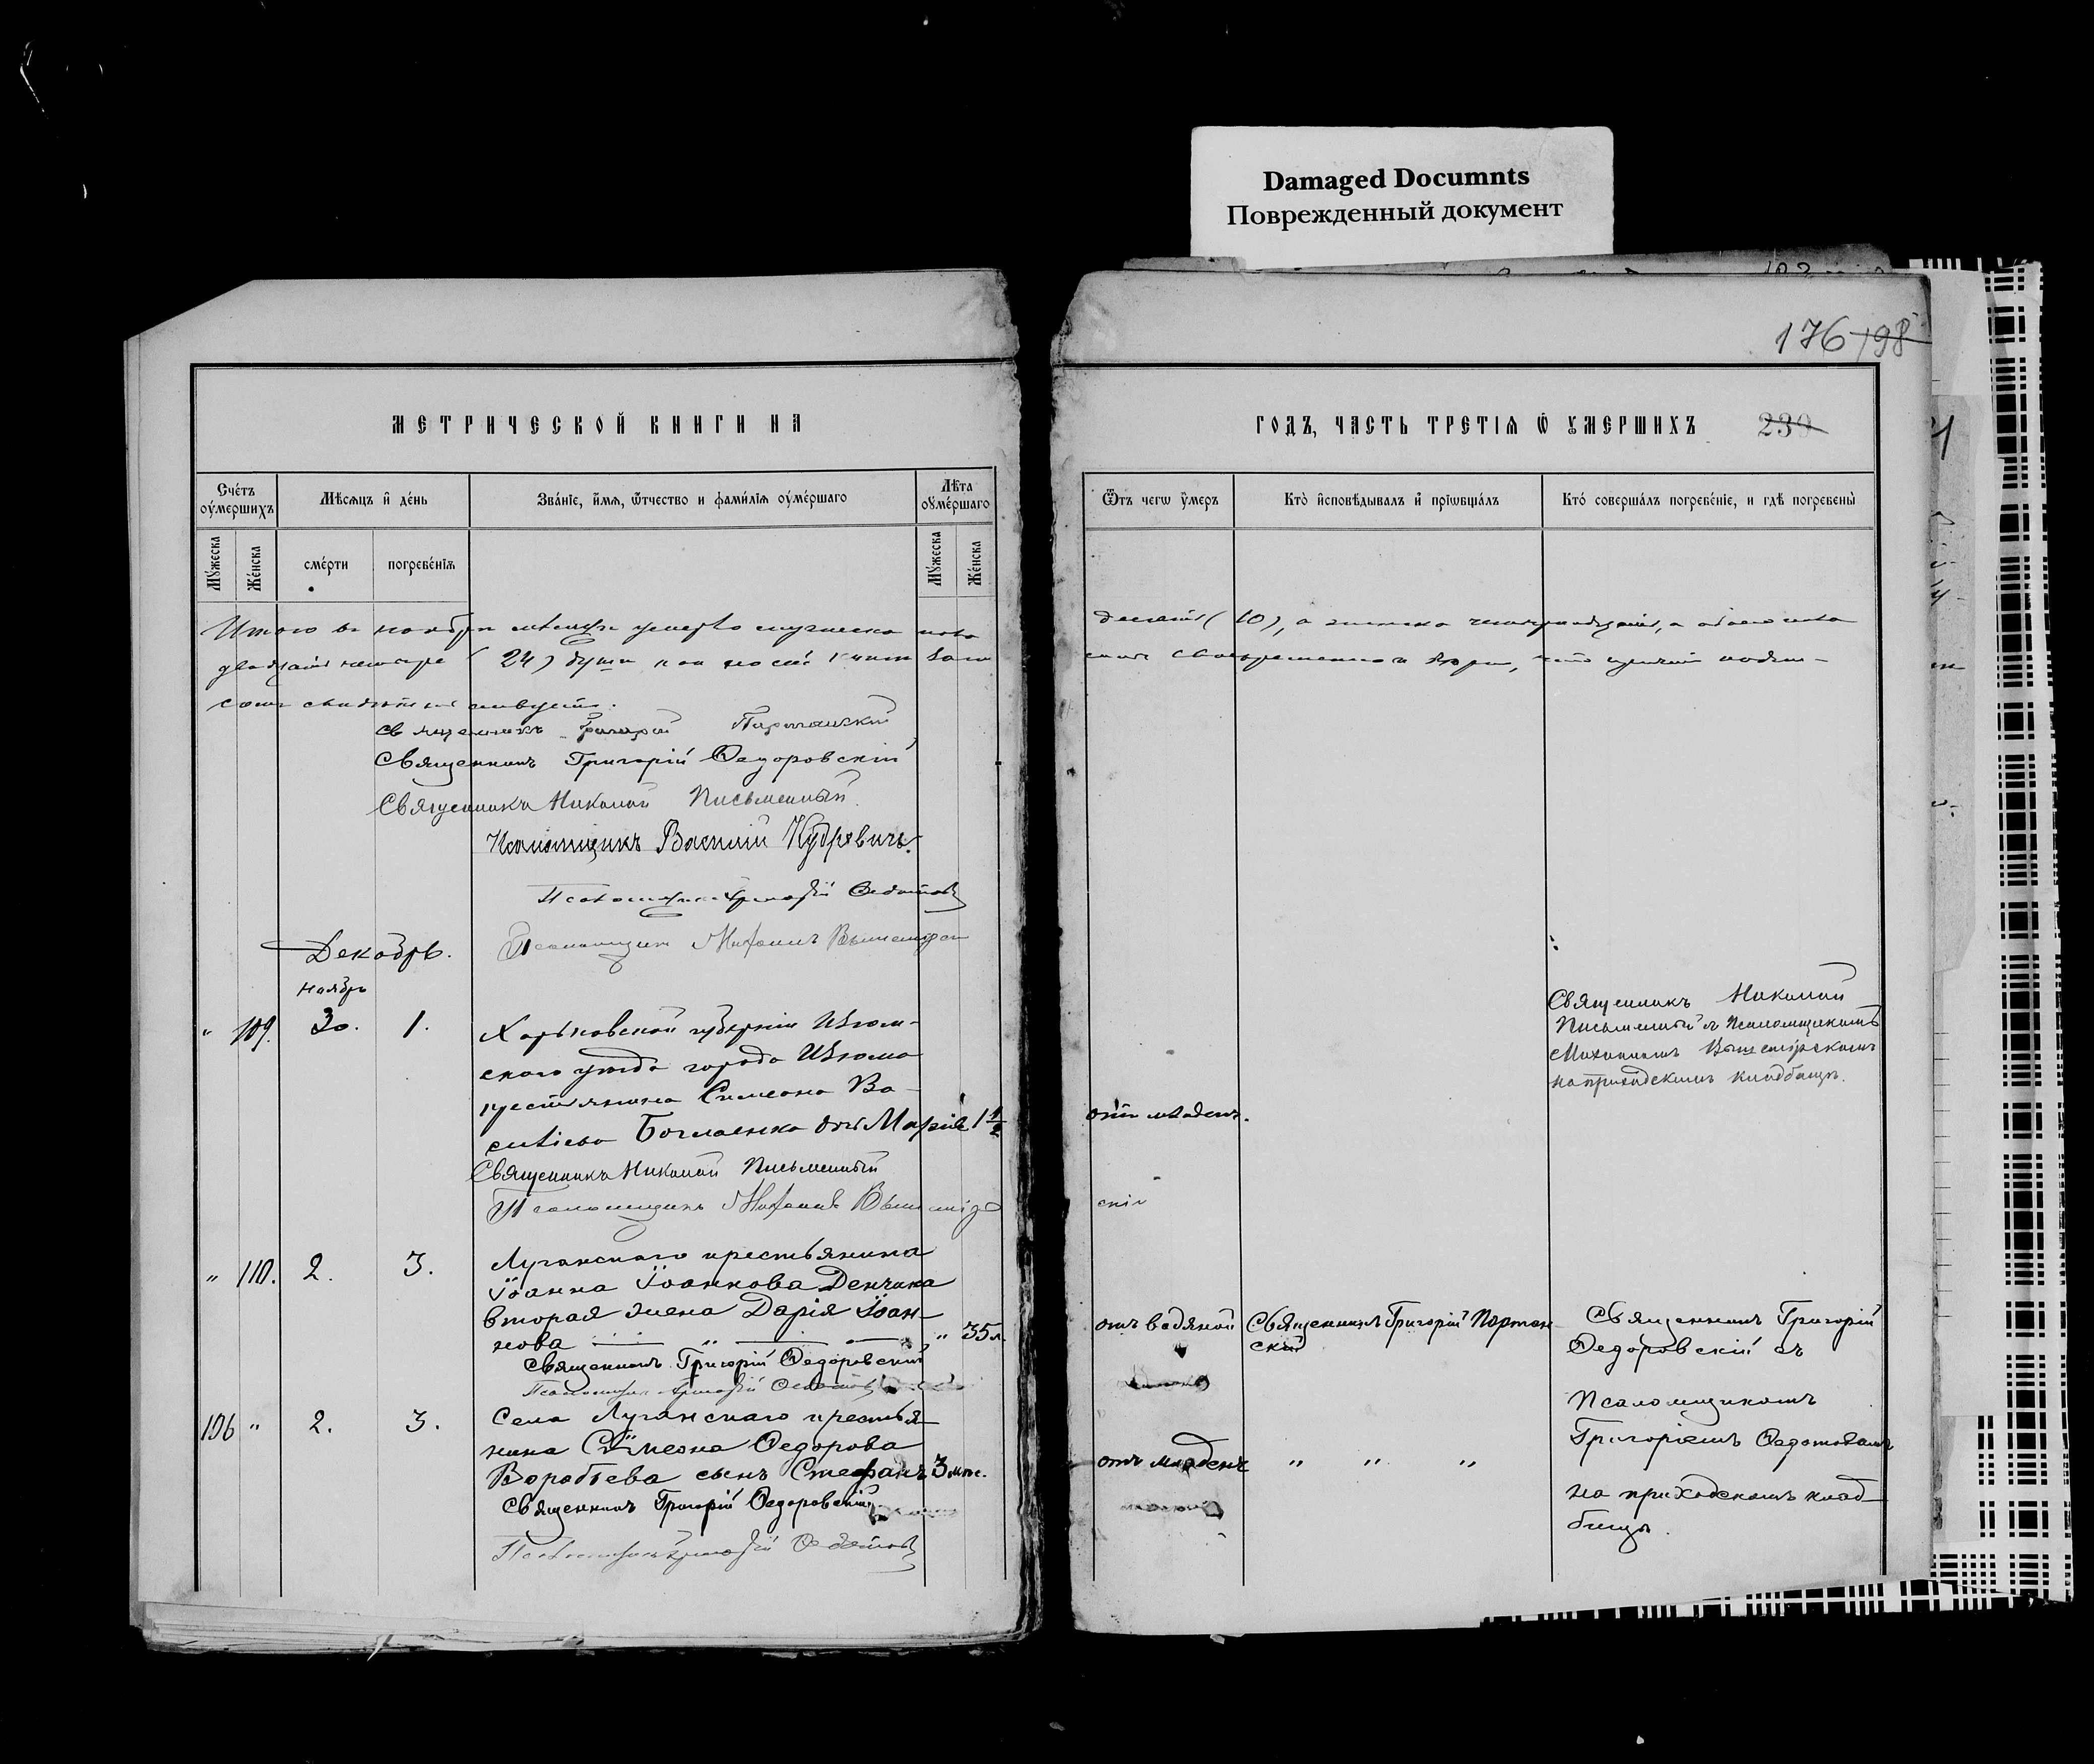 Damaged Documnts
Поврежденный документ
176 198
МЕТРИЧЕСКОЙ КНИГИ НА
ГОДЪ, ЧАСТЬ ТРЕТІѦ Ѿ ᲂУМЕРШИХЪ 239
Сче́тъ ᲂу҆ме́ршихъ
Мѣсѧцъ и҆ де́нь
Зва́нїе, и҆́мѧ, ѻ҆́тчество и фамі́лїѧ ᲂу҆ме́ршагѡ
Лѣ́та ᲂу҆ме́ршагѡ
Ѿ чегѡ̀ ᲂу҆́меръ
Кто̀ и҆сповѣ́дывалъ и҆ прїѡбща́лъ
Кто́ соверша́лъ погребе́нїе, и гдѣ̀ погребены̀
Мꙋ́жеска
Же́нска
сме́рти
погребе́нїѧ
Мꙋ́жеска
Же́нска
Итого въ ноябрѣ мѣсяцѣ умерло мужеска пола
десять (10), а женска четырнадцать, а обоего пола
двадцать четыре (24) души
Священникъ Григорій
Священникъ Григорій Ѳедоровскій
Священникъ Николай Письменный.
Псаломщикъ Василій Кудревичъ.
Псаломщикъ Григорій Ѳедотовъ
Псаломщикъ Михаилъ
Декабрь.
ноябрь
" 109. 30. 1. Харьковской губерніи Изюм-
скаго уѣзда города Изюма
крестьянина Симеона Ва-
силіева дочь Марія 1 1/2
отъ младен.
Священникъ Николай
Письменный съ Псаломщикомъ
Михаиломъ
на приходскомъ кладбищѣ.
Священникъ Николай Письменный
Псаломщикъ Михаилъ
скій
" 110. 2. 3. Луганскаго крестьянина
Іоанна Іоаннова Денчика
вторая жена Дарія Іоан-
нова " " 35 л.
отъ водяной
Священникъ Григорій Портан
скій
Священникъ Григорій
Ѳедоровскій съ
Псаломщикомъ
Григоріемъ Ѳедотовымъ
на приходскомъ клад-
бищѣ.
Священникъ Григорій Ѳедоровскій
Псаломщикъ Григорій Ѳедотовъ
106 " 2. 3. Села Луганскаго крестья-
нина Симеона Ѳедорова
Воробьева сынъ Стефанъ 3 мѣс.
отъ младен " " "
Священникъ Григорій Ѳедоровскій
Псаломщикъ Григорій Ѳедотовъ